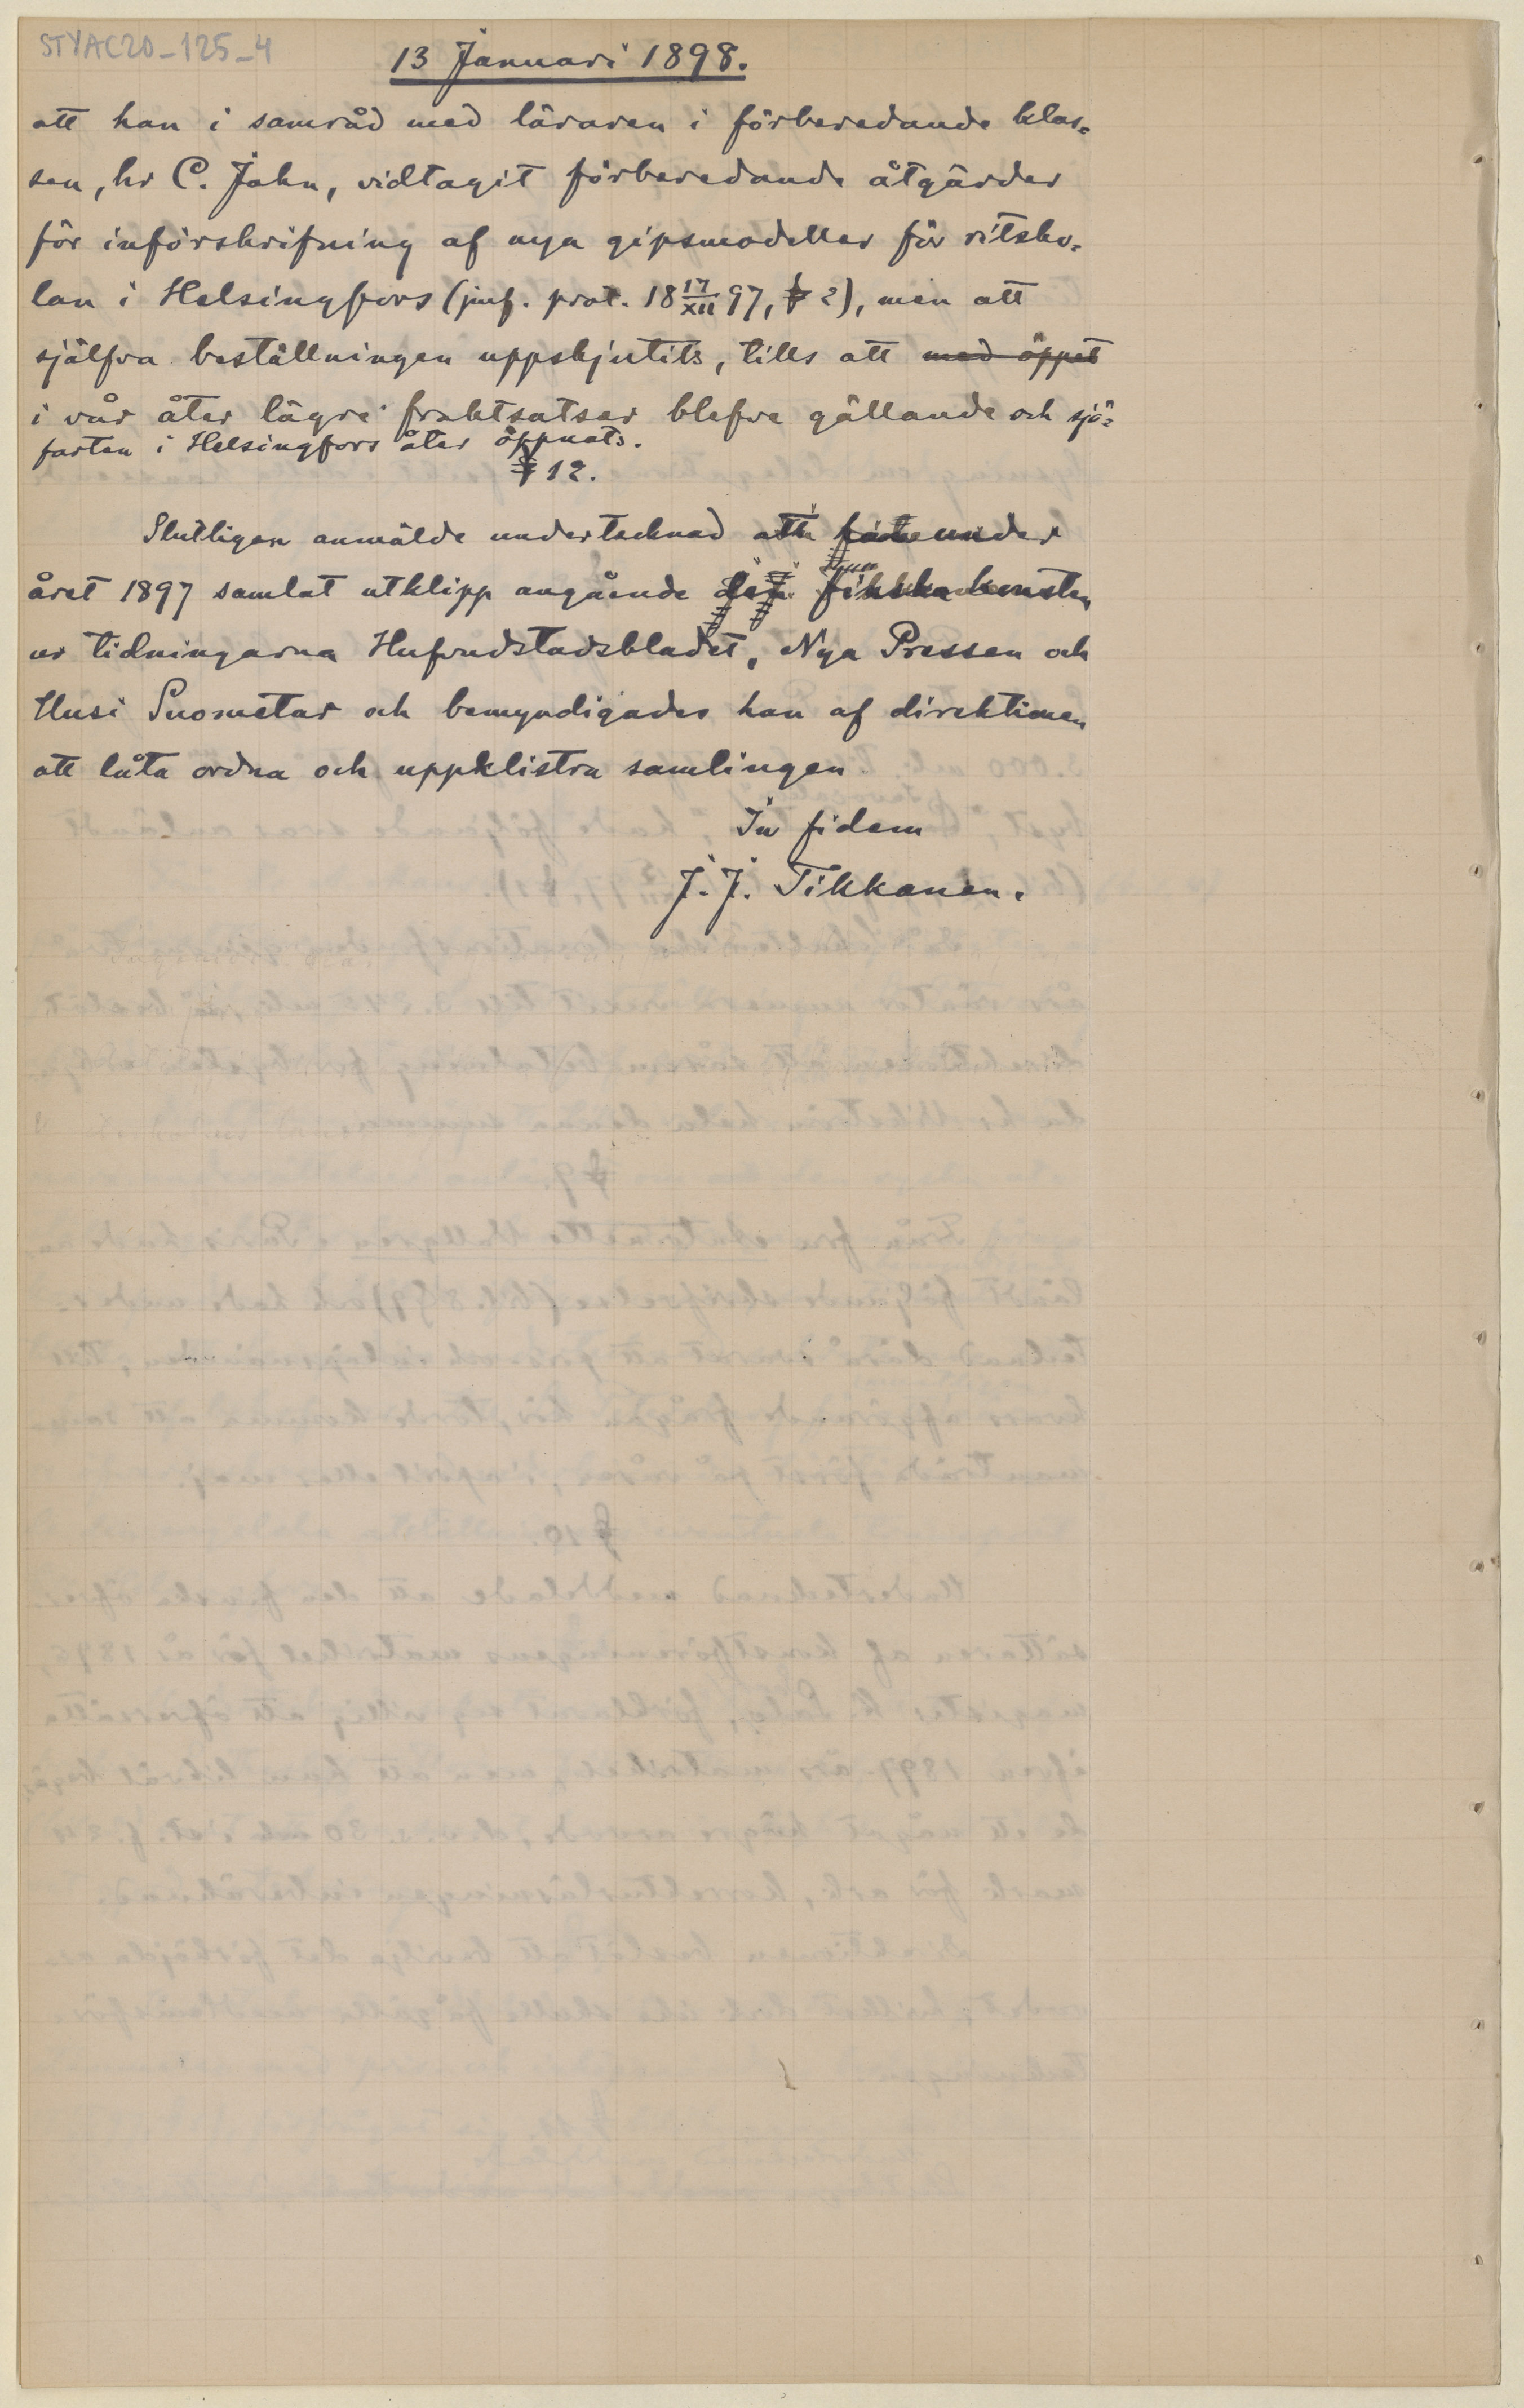 STYAC20_125_4
13 Januari 1898.
att han i samråd med läraren i förberedande klas=
sen, hr C. Jahn, vidtagit förberedande åtgärder
för införskrifning af nya gipsmodeller för ritsko=
lan i Helsingfors (jmf. prot. 18 17/XII 97, § 2), men att
själfva beställningen uppskjutits, tills att med öppet
i vår åter lägre fraktsatser blefve gällande och sjö=
farten i Helsingfors åter öppnats.
§ 12.
Slutligen anmälde undertecknad under
året 1897 samlat utklipp angående finska konsten
ur tidningarna Hufvudstadsbladet, Nya Pressen och
Uusi Suometar och bemyndigades han af direktionen
att låta ordna och uppklistra samlingen.
In fidem
J. J. Tikkanen.